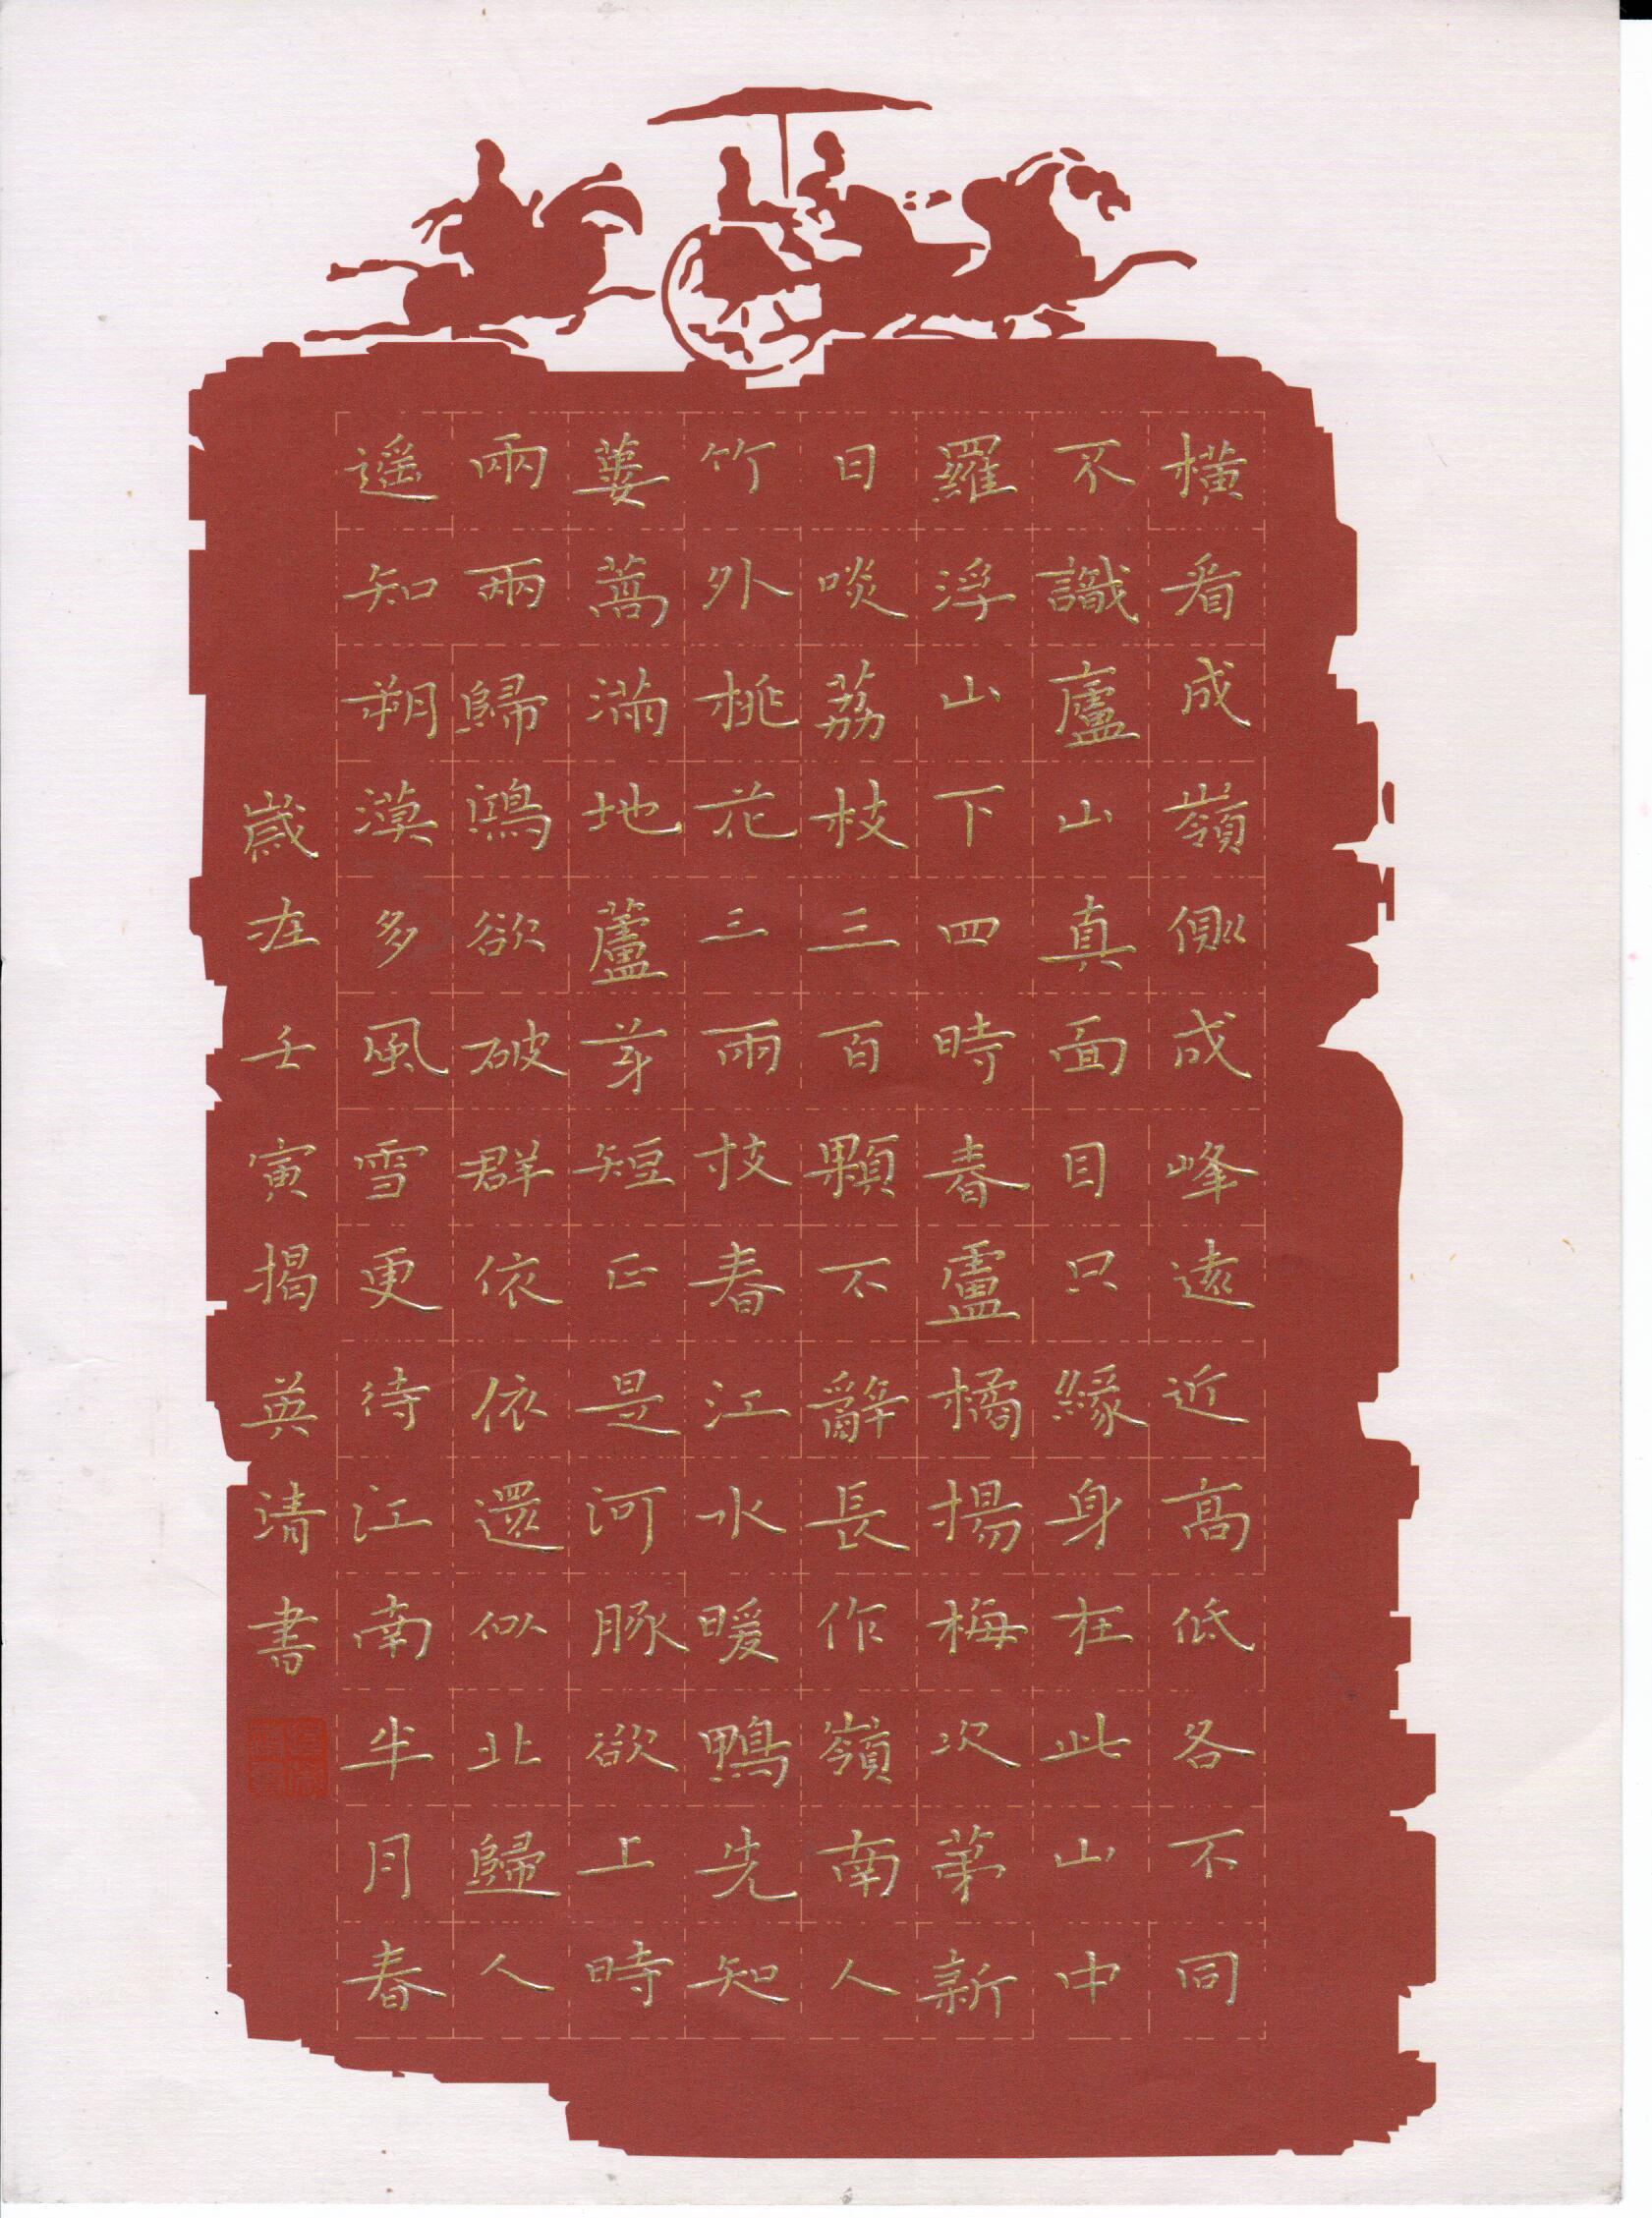 橫看成嶺側成峰遠近高低各不同
不識廬山真面目只緣身在此山中
羅浮山下四時春盧橘揚梅次苐新
日啖荔枝三百顆不辭長作嶺南人
竹外桃花三兩枝春江水暖鴨先知
蔞蒿滿地蘆芽短正是河豚欲上時
兩兩歸鴻欲破群依依還似北歸人
遥知朔漠多風雪更待江南半月春
歲在壬寅揭英清書